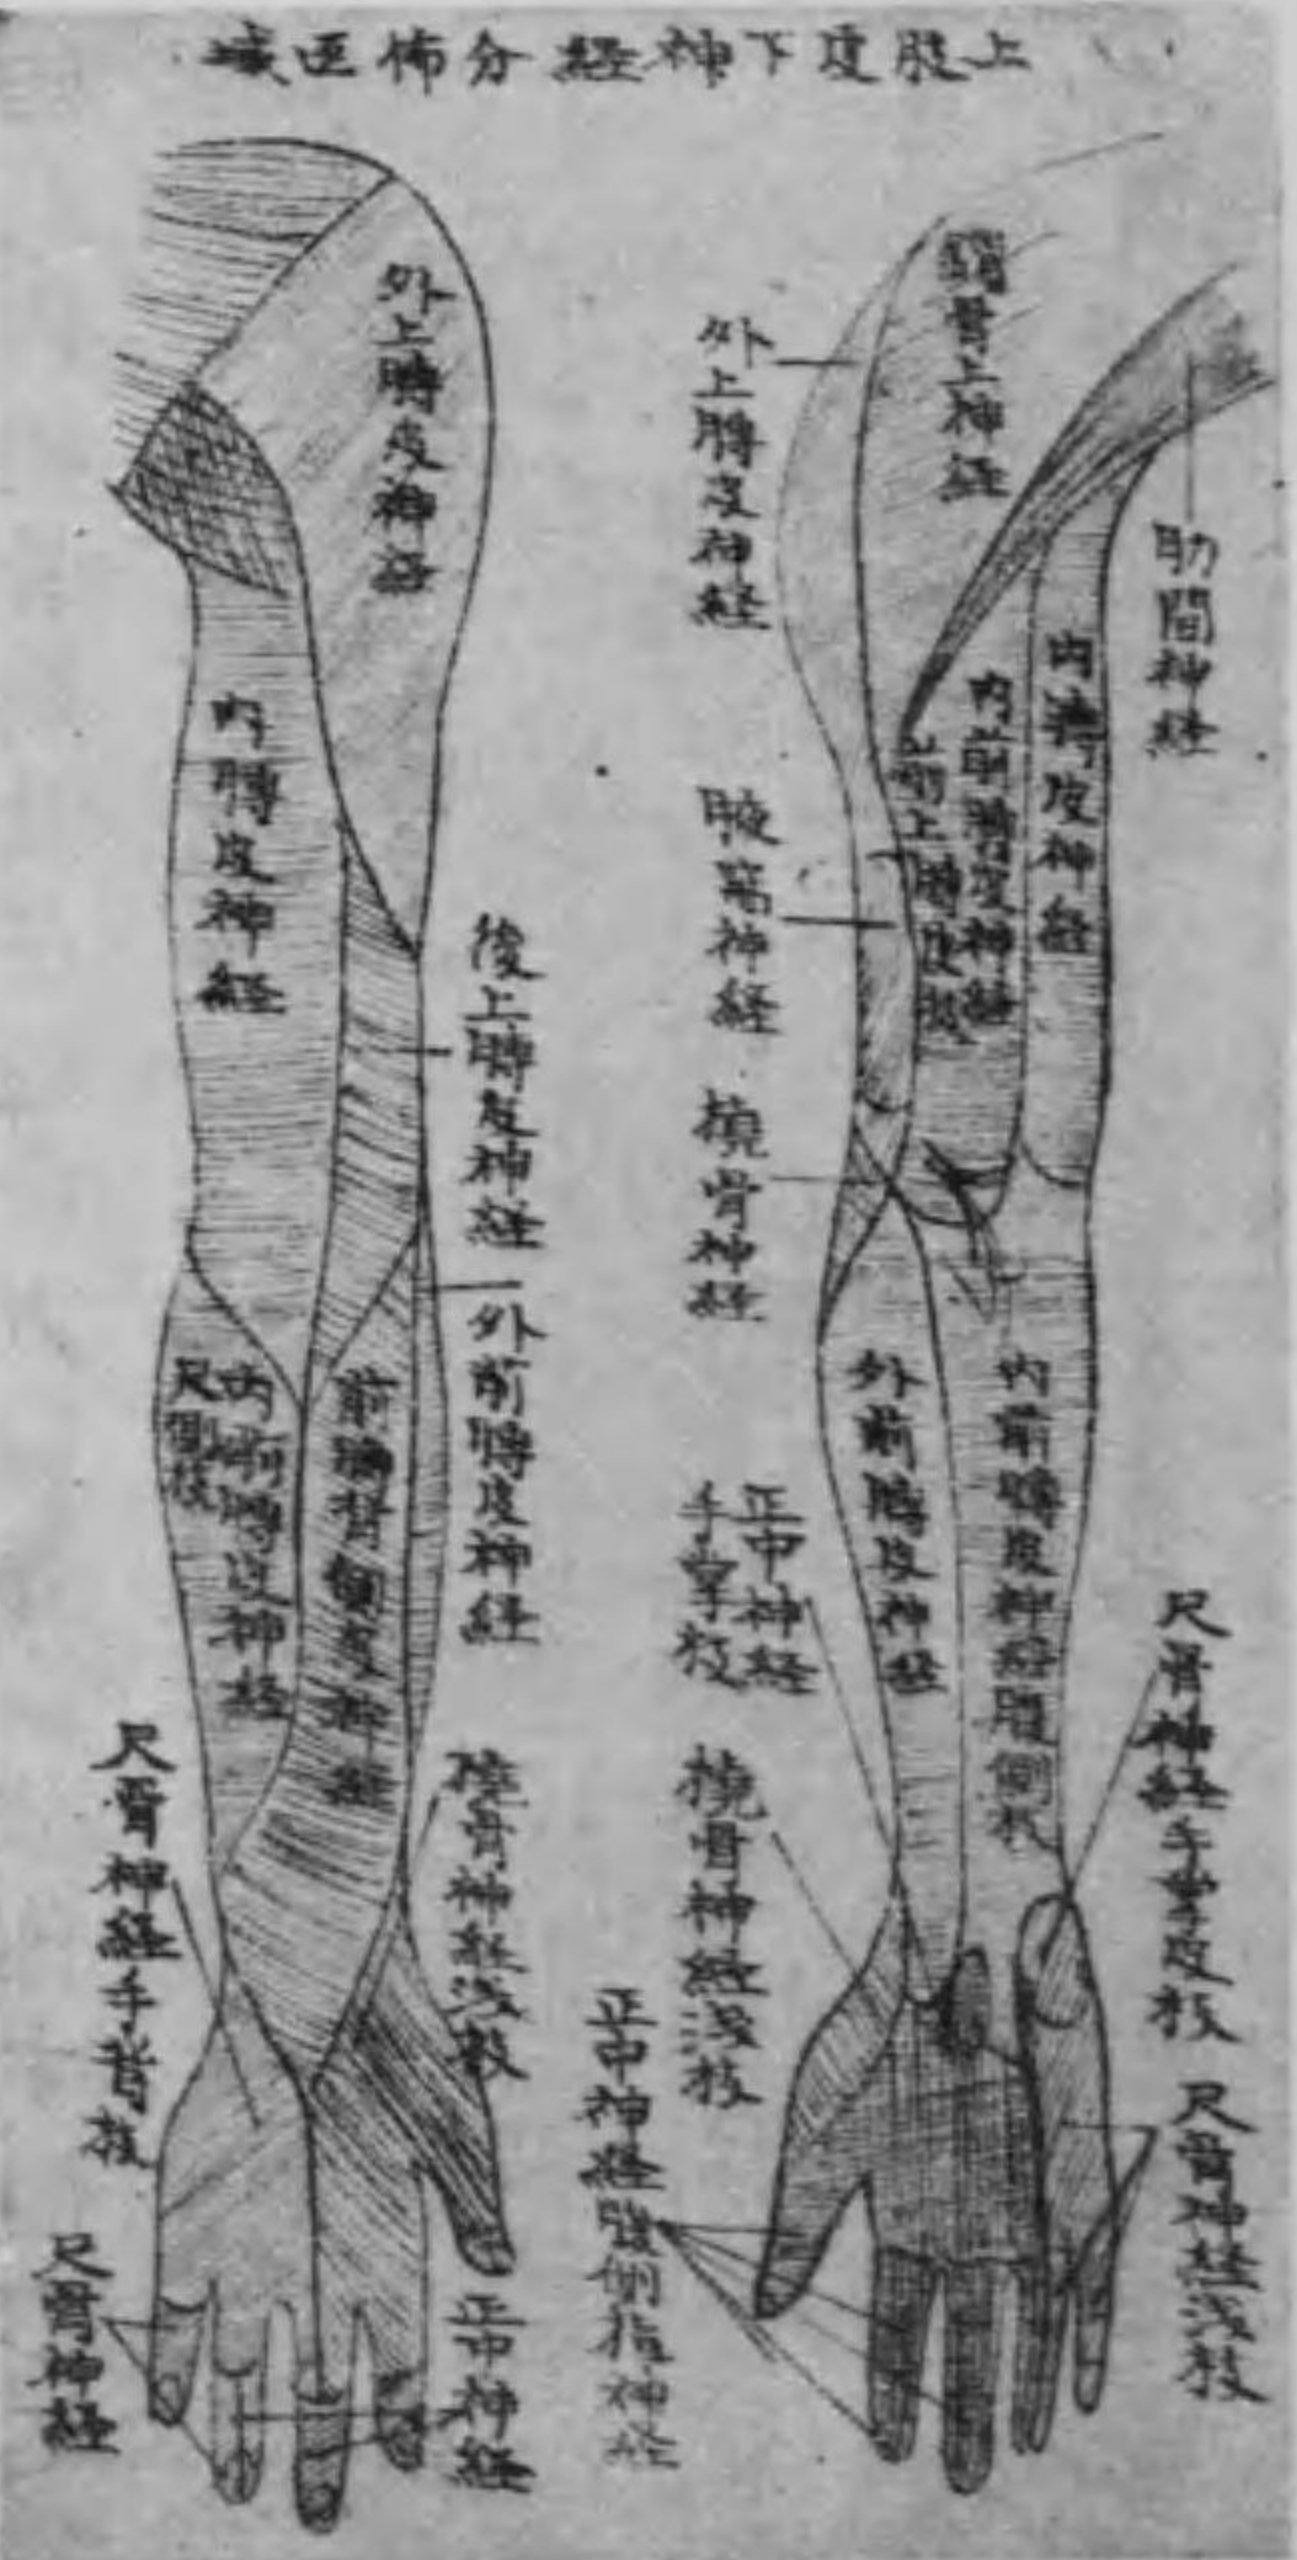 上肢皮下神経分佈区域
鎖骨上神経
外上膊皮神経
肋間神経
内膊皮神経
内前膊皮神経
前上膊皮枝
腋窩神経
橈骨神経
外前膊皮神経
内前膊皮神経腹側枝
正中神経
手掌枝
尺骨神経手掌皮枝
橈骨神経浅枝
尺骨神経浅枝
正中神経腹側指神経
外上膊皮神経
内膊皮神経
後上膊皮神経
外前膊皮神経
前膊背側皮神経
内前膊皮神経
尺側枝
橈骨神経浅枝
尺骨神経手背枝
正中神経
尺骨神経